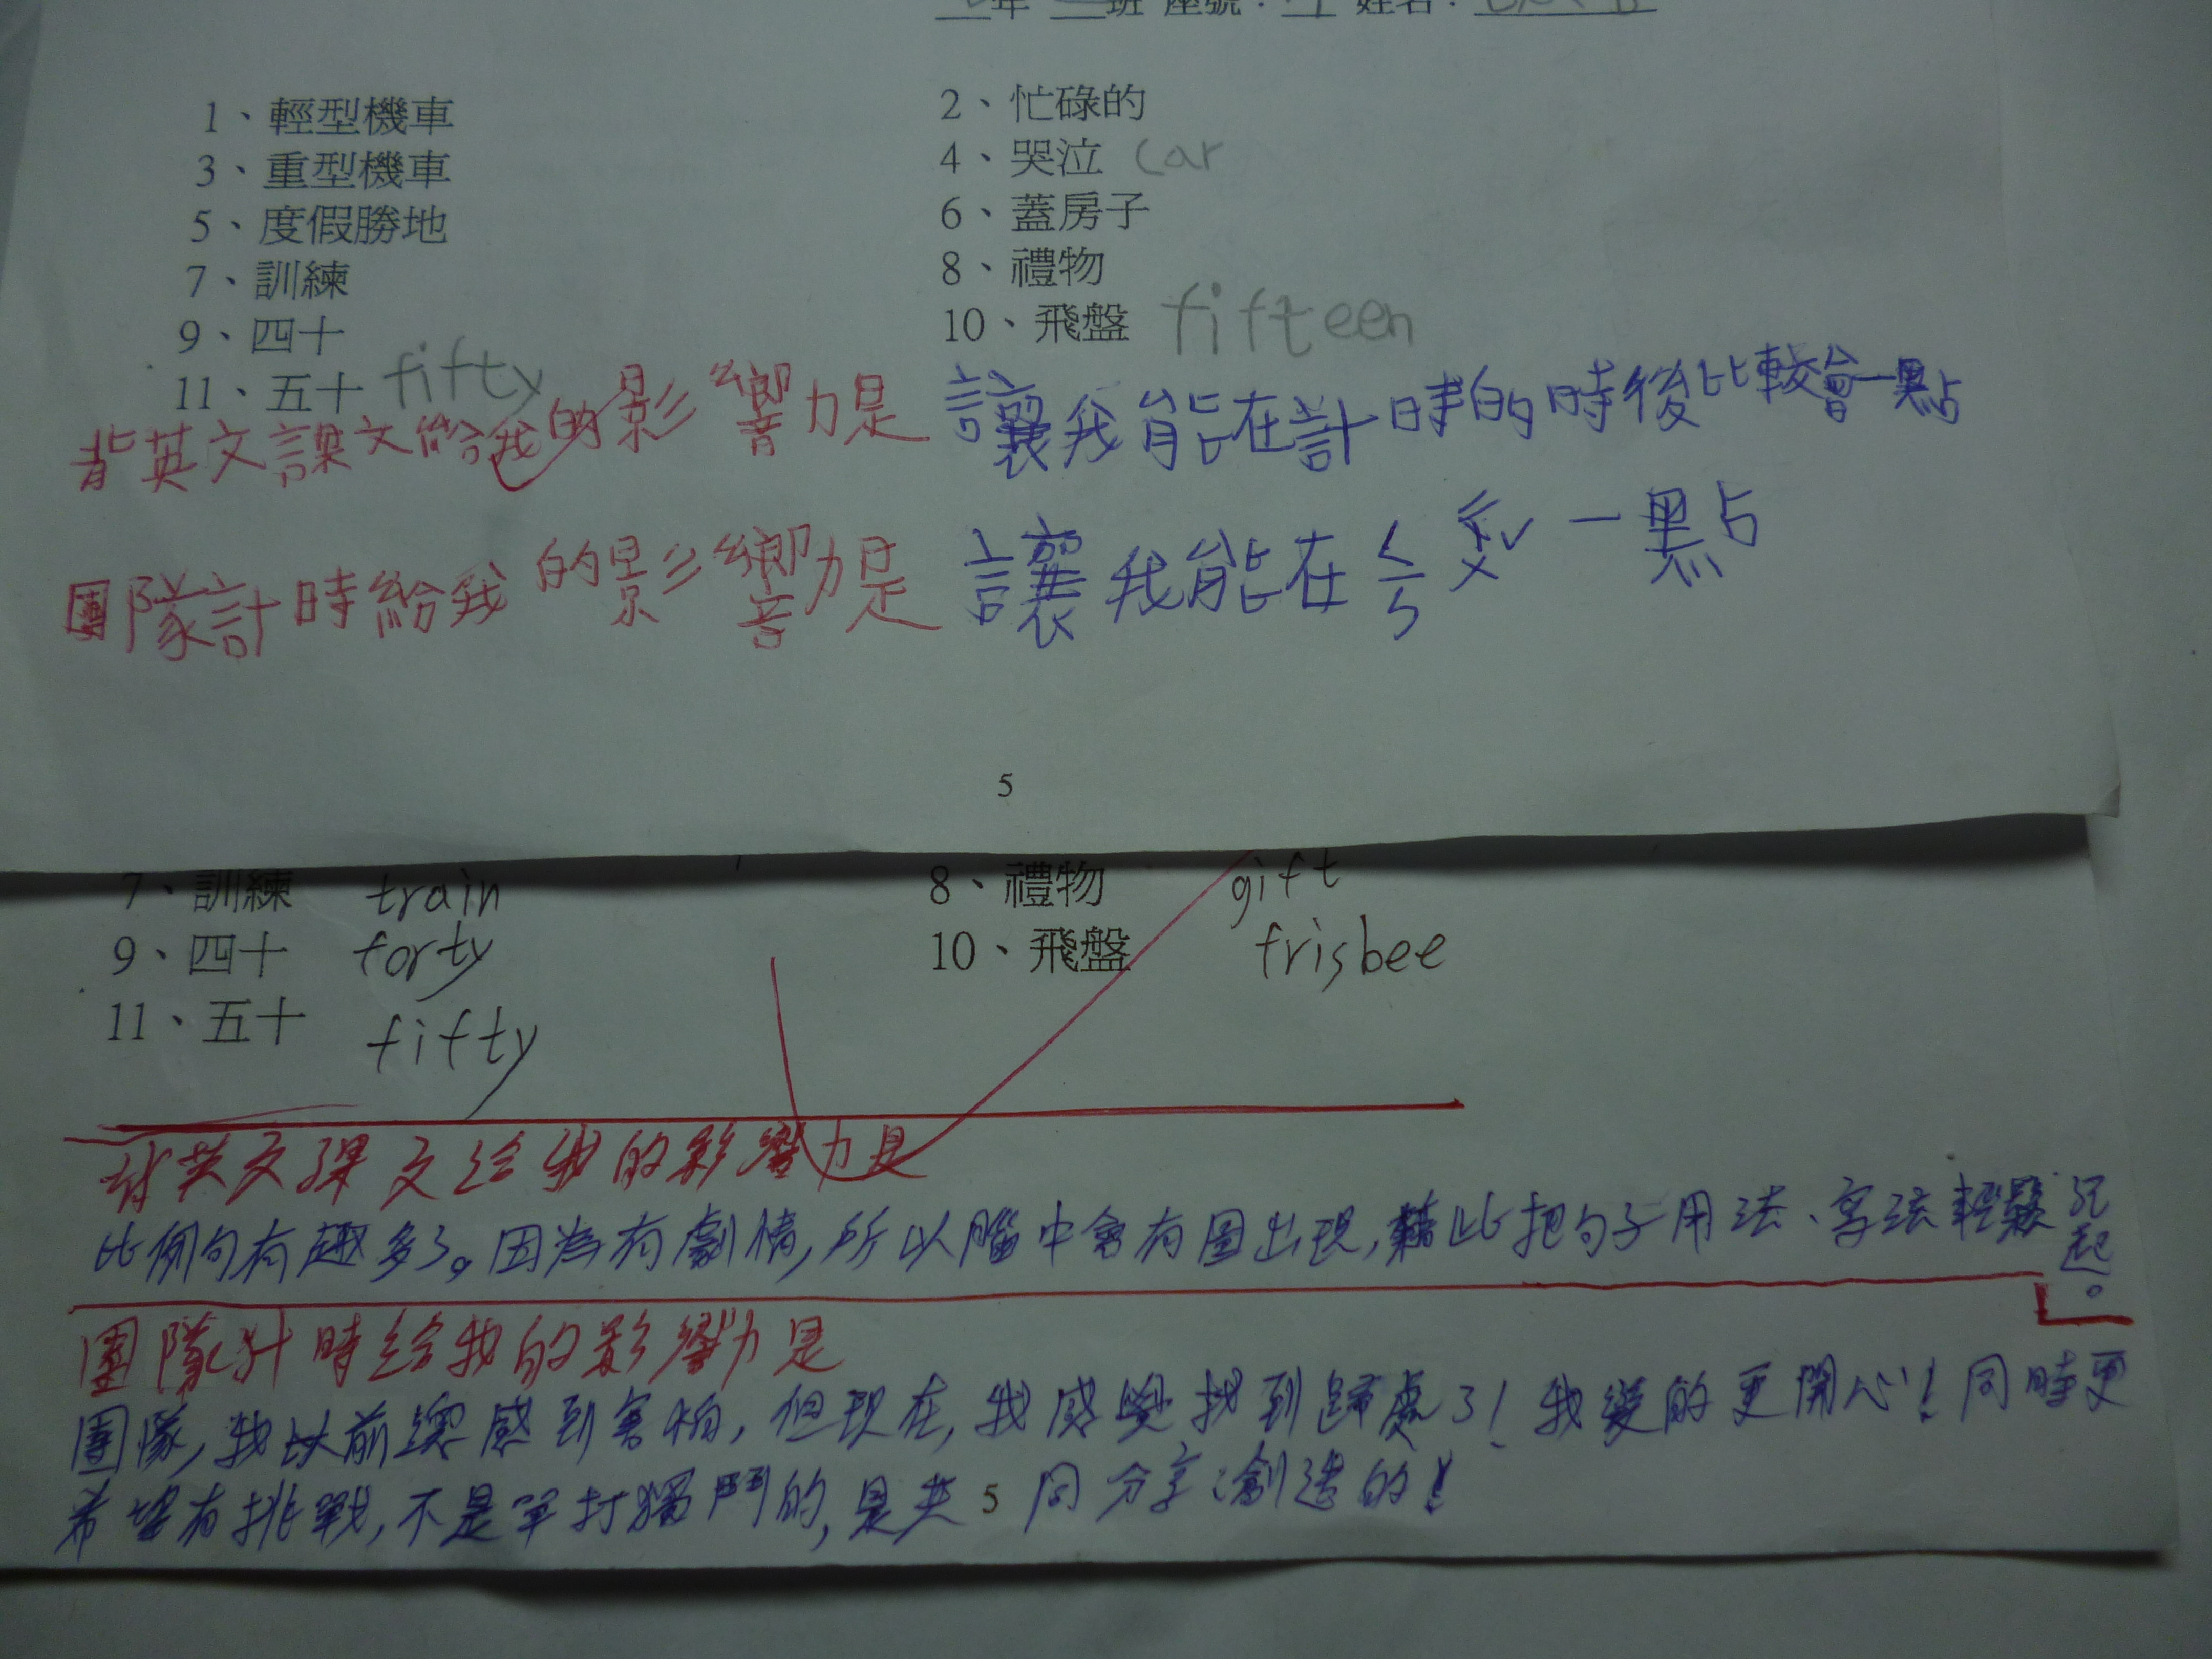 年 班 座號： 姓名：
1、輕型機車 2、忙碌的
3、重型機車 4、哭泣 car
5、度假勝地 6、蓋房子
7、訓練 8、禮物
9、四十 10、飛盤 fifteen
11、五十 fifty
背英文課文給我的影響力是 讓我能在計時的時後比較會一點
團隊計時給我的影響力是 讓我能在ㄑㄧㄤˊ一點
5
7、訓練 train 8、禮物 gift
9、四十 forty 10、飛盤 frisbee
11、五十 fifty
背英文課文給我的影響力是
比例句有趣多了。因為有劇情,所以腦中會有圖出現,藉此把句子用法、字法輕鬆記起。
團隊計時給我的影響力是
團隊,我以前總感到害怕,但現在,我感覺找到歸處了!我變的更開心!同時更
希望有挑戰,不是單打獨鬥的,是共同分享、創造的!
5